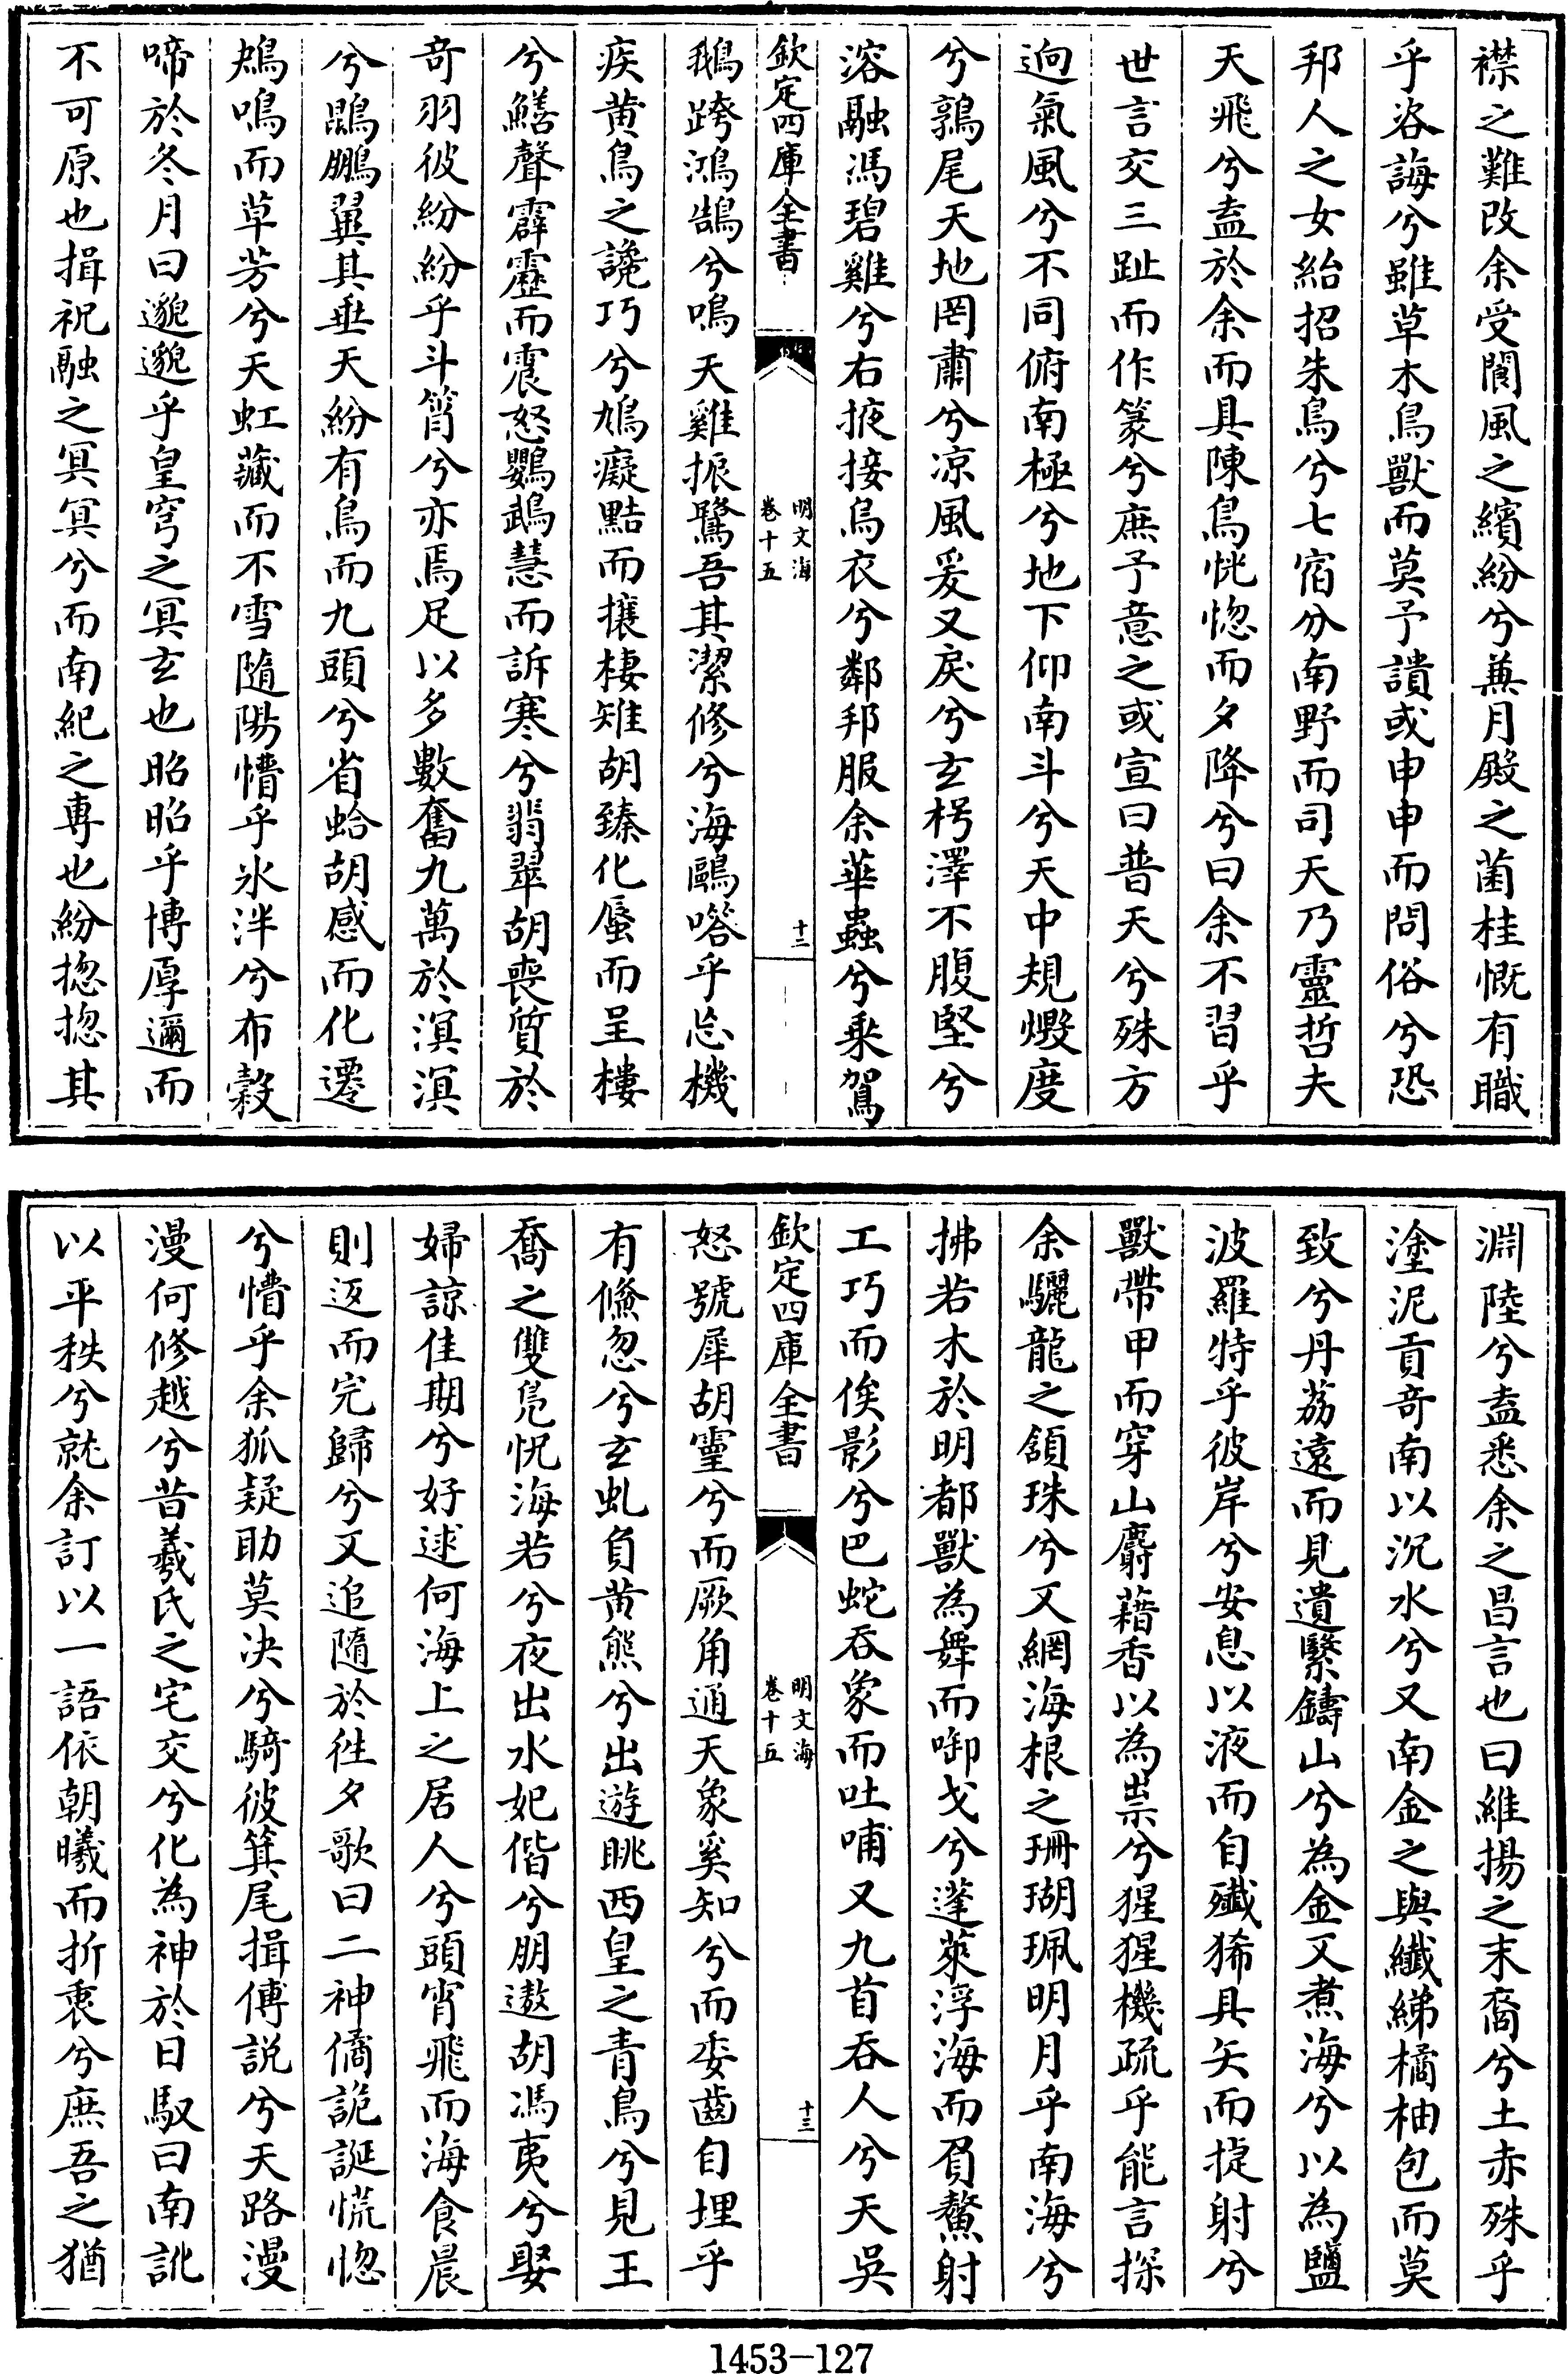 襟之難改余受閬風之繽紛兮兼月殿之菌桂慨有職
乎咨誨兮雖草木鳥獸而莫予讀或申申而問俗兮恐
邦人之女紿招朱鳥兮七宿分南野而司天乃靈哲夫
天飛兮盍於余而具陳鳥恍惚而夕降兮曰余不習乎
世言交三趾而作篆兮庶予意之或宣曰普天兮殊方
逈氣風兮不同俯南極兮地下仰南斗兮天中規燬度
兮鶉尾天地罔肅兮凉風爰又戾兮玄枵澤不腹堅兮
溶融馮碧雞兮右掖接烏衣兮鄰邦服余華蟲兮乘鴐
欽定四庫全書
明文海
卷十五
十二
鵝跨鴻鵠兮鳴天雞振鷺吾其潔修兮海鷗嗒乎忘機
疾黃鳥之讒巧兮鳩癡黠而攘棲雉胡臻化蜃而呈樓
兮鱔聲霹靂而震怒鸚鵡慧而訴寒兮翡翠胡喪質於
奇羽彼紛紛乎斗筲兮亦焉足以多數奮九萬於溟溟
兮鵾鵬翼其垂天紛有鳥而九頭兮省蛤胡感而化遷
鴂鳴而草芳兮天虹藏而不雪隨陽懵乎氷泮兮布穀
啼於冬月曰邈邈乎皇穹之冥玄也昭昭乎博厚邇而
不可原也揖祝融之冥冥兮而南紀之專也紛揔揔其
淵陸兮盍悉余之昌言也曰維揚之末裔兮土赤殊乎
塗泥貢奇南以沉水兮又南金之與纖綈橘柚包而莫
致兮丹荔遠而見遺繄鑄山兮為金又煮海兮以為鹽
波羅特乎彼岸兮安息以液而自殲狶具矢而捷射兮
獸帶甲而穿山麝藉香以為祟兮猩猩機疏乎能言探
余驪龍之頷珠兮又網海根之珊瑚珮明月乎南海兮
拂若木於明都獸為舞而啣戈兮蓬萊浮海而負鰲射
工巧而俟影兮巴蛇吞象而吐哺又九首吞人兮天吳
欽定四庫全書
明文海
卷十五
十三
怒號犀胡靈兮而厥角通天象奚知兮而委齒自埋乎
有儵忽兮玄虬負黃熊兮出遊眺西皇之青鳥兮見王
喬之雙鳧怳海若兮夜出水妃偕兮朋遨胡馮夷兮娶
婦諒佳期兮好逑何海上之居人兮頭宵飛而海食晨
則返而完歸兮又追隨於徃夕歌曰二神僑詭誕慌惚
兮懵乎余狐疑助莫决兮騎彼箕尾揖傅説兮天路漫
漫何修越兮昔羲氏之宅交兮化為神於日馭曰南訛
以平秩兮就余訂以一語依朝曦而折衷兮庶吾之猶
1453-127